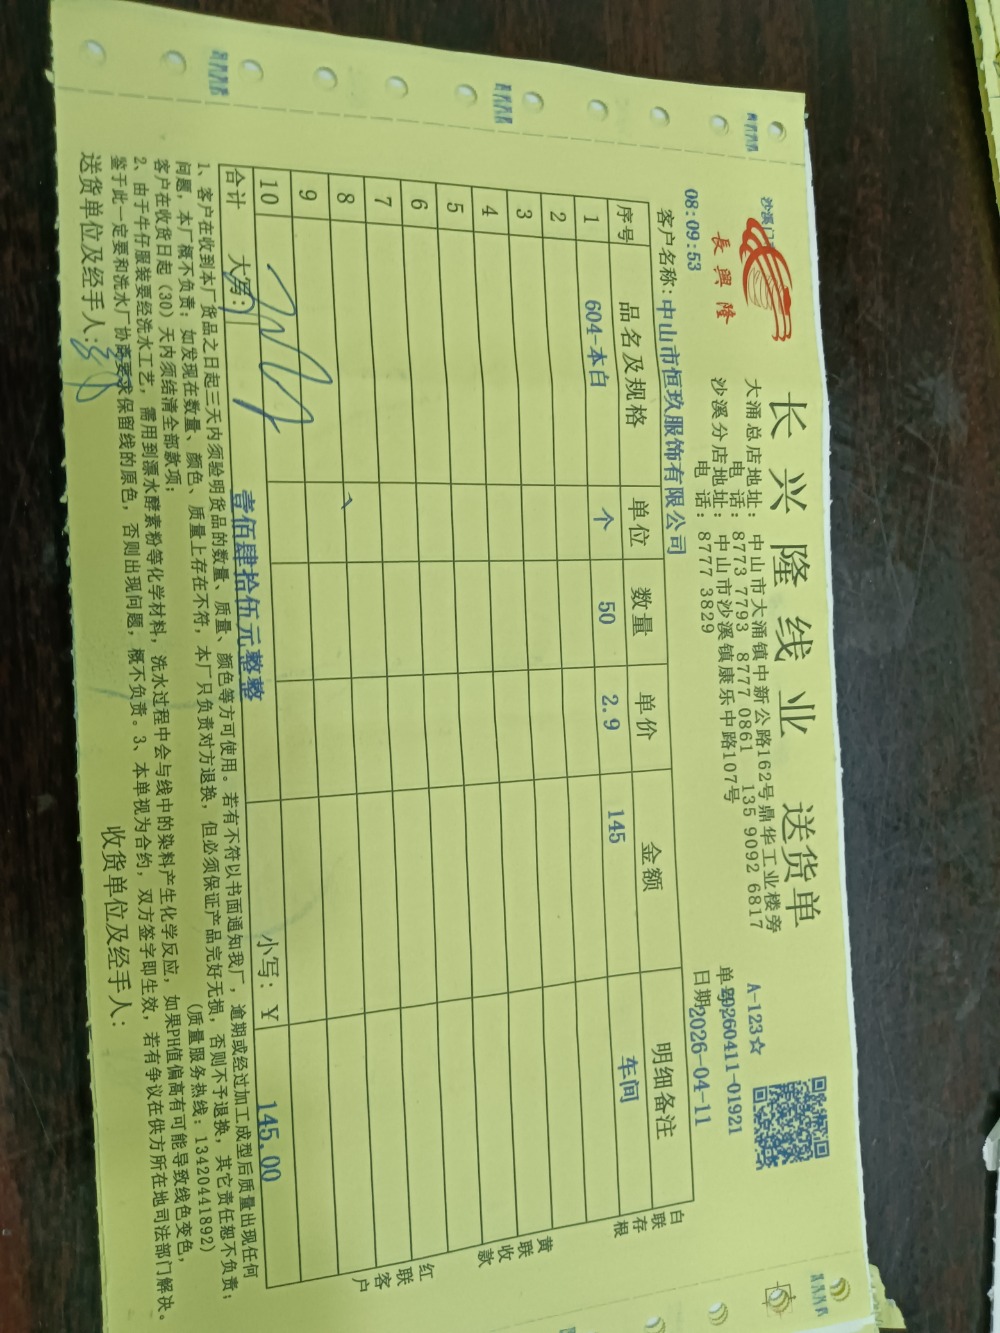 沙溪门
長興隆
长兴隆线业 送货单
大涌总店地址：中山市大涌镇中新公路162号鼎华工业楼旁
电 话：8773 7793 8777 0861 135 9092 6817
沙溪分店地址：中山市沙溪镇康乐中路107号
电 话：8777 3829
A-123☆
单号20260411-01921
日期2026-04-11
08:09:53
客户名称：中山市恒玖服饰有限公司
序号 品名及规格 单位 数量 单价 金额 明细备注
1 604-本白 个 50 2.9 145 车间
2
3
4
5
6
7
8
9
10
合计 大写：壹佰肆拾伍元整整 小写：¥ 145.00
白联存根
黄联收款
红联客户
1、客户在收到本厂货品之日起三天内须验明货品的数量、质量、颜色等方可使用。若有不符以书面通知我厂，逾期或经过加工成型后质量出现任何
问题，本厂概不负责；如发现在数量、颜色、质量上存在不符，本厂只负责对方退换，但必须保证产品完好无损，否则不予退换，其它责任恕不负责；
客户在收货日起（30）天内须结清全部款项；
（质量服务热线：13420441892）
2、由于牛仔服装要经洗水工艺，需用到漂水酵素粉等化学材料，洗水过程中会与线中的染料产生化学反应，如果PH值偏高有可能导致线色变色，
鉴于此一定要和洗水厂协商要求保留线的原色，否则出现问题，概不负责。3、本单视为合约，双方签字即生效，若有争议在供方所在地司法部门解决。
送货单位及经手人：
收货单位及经手人：